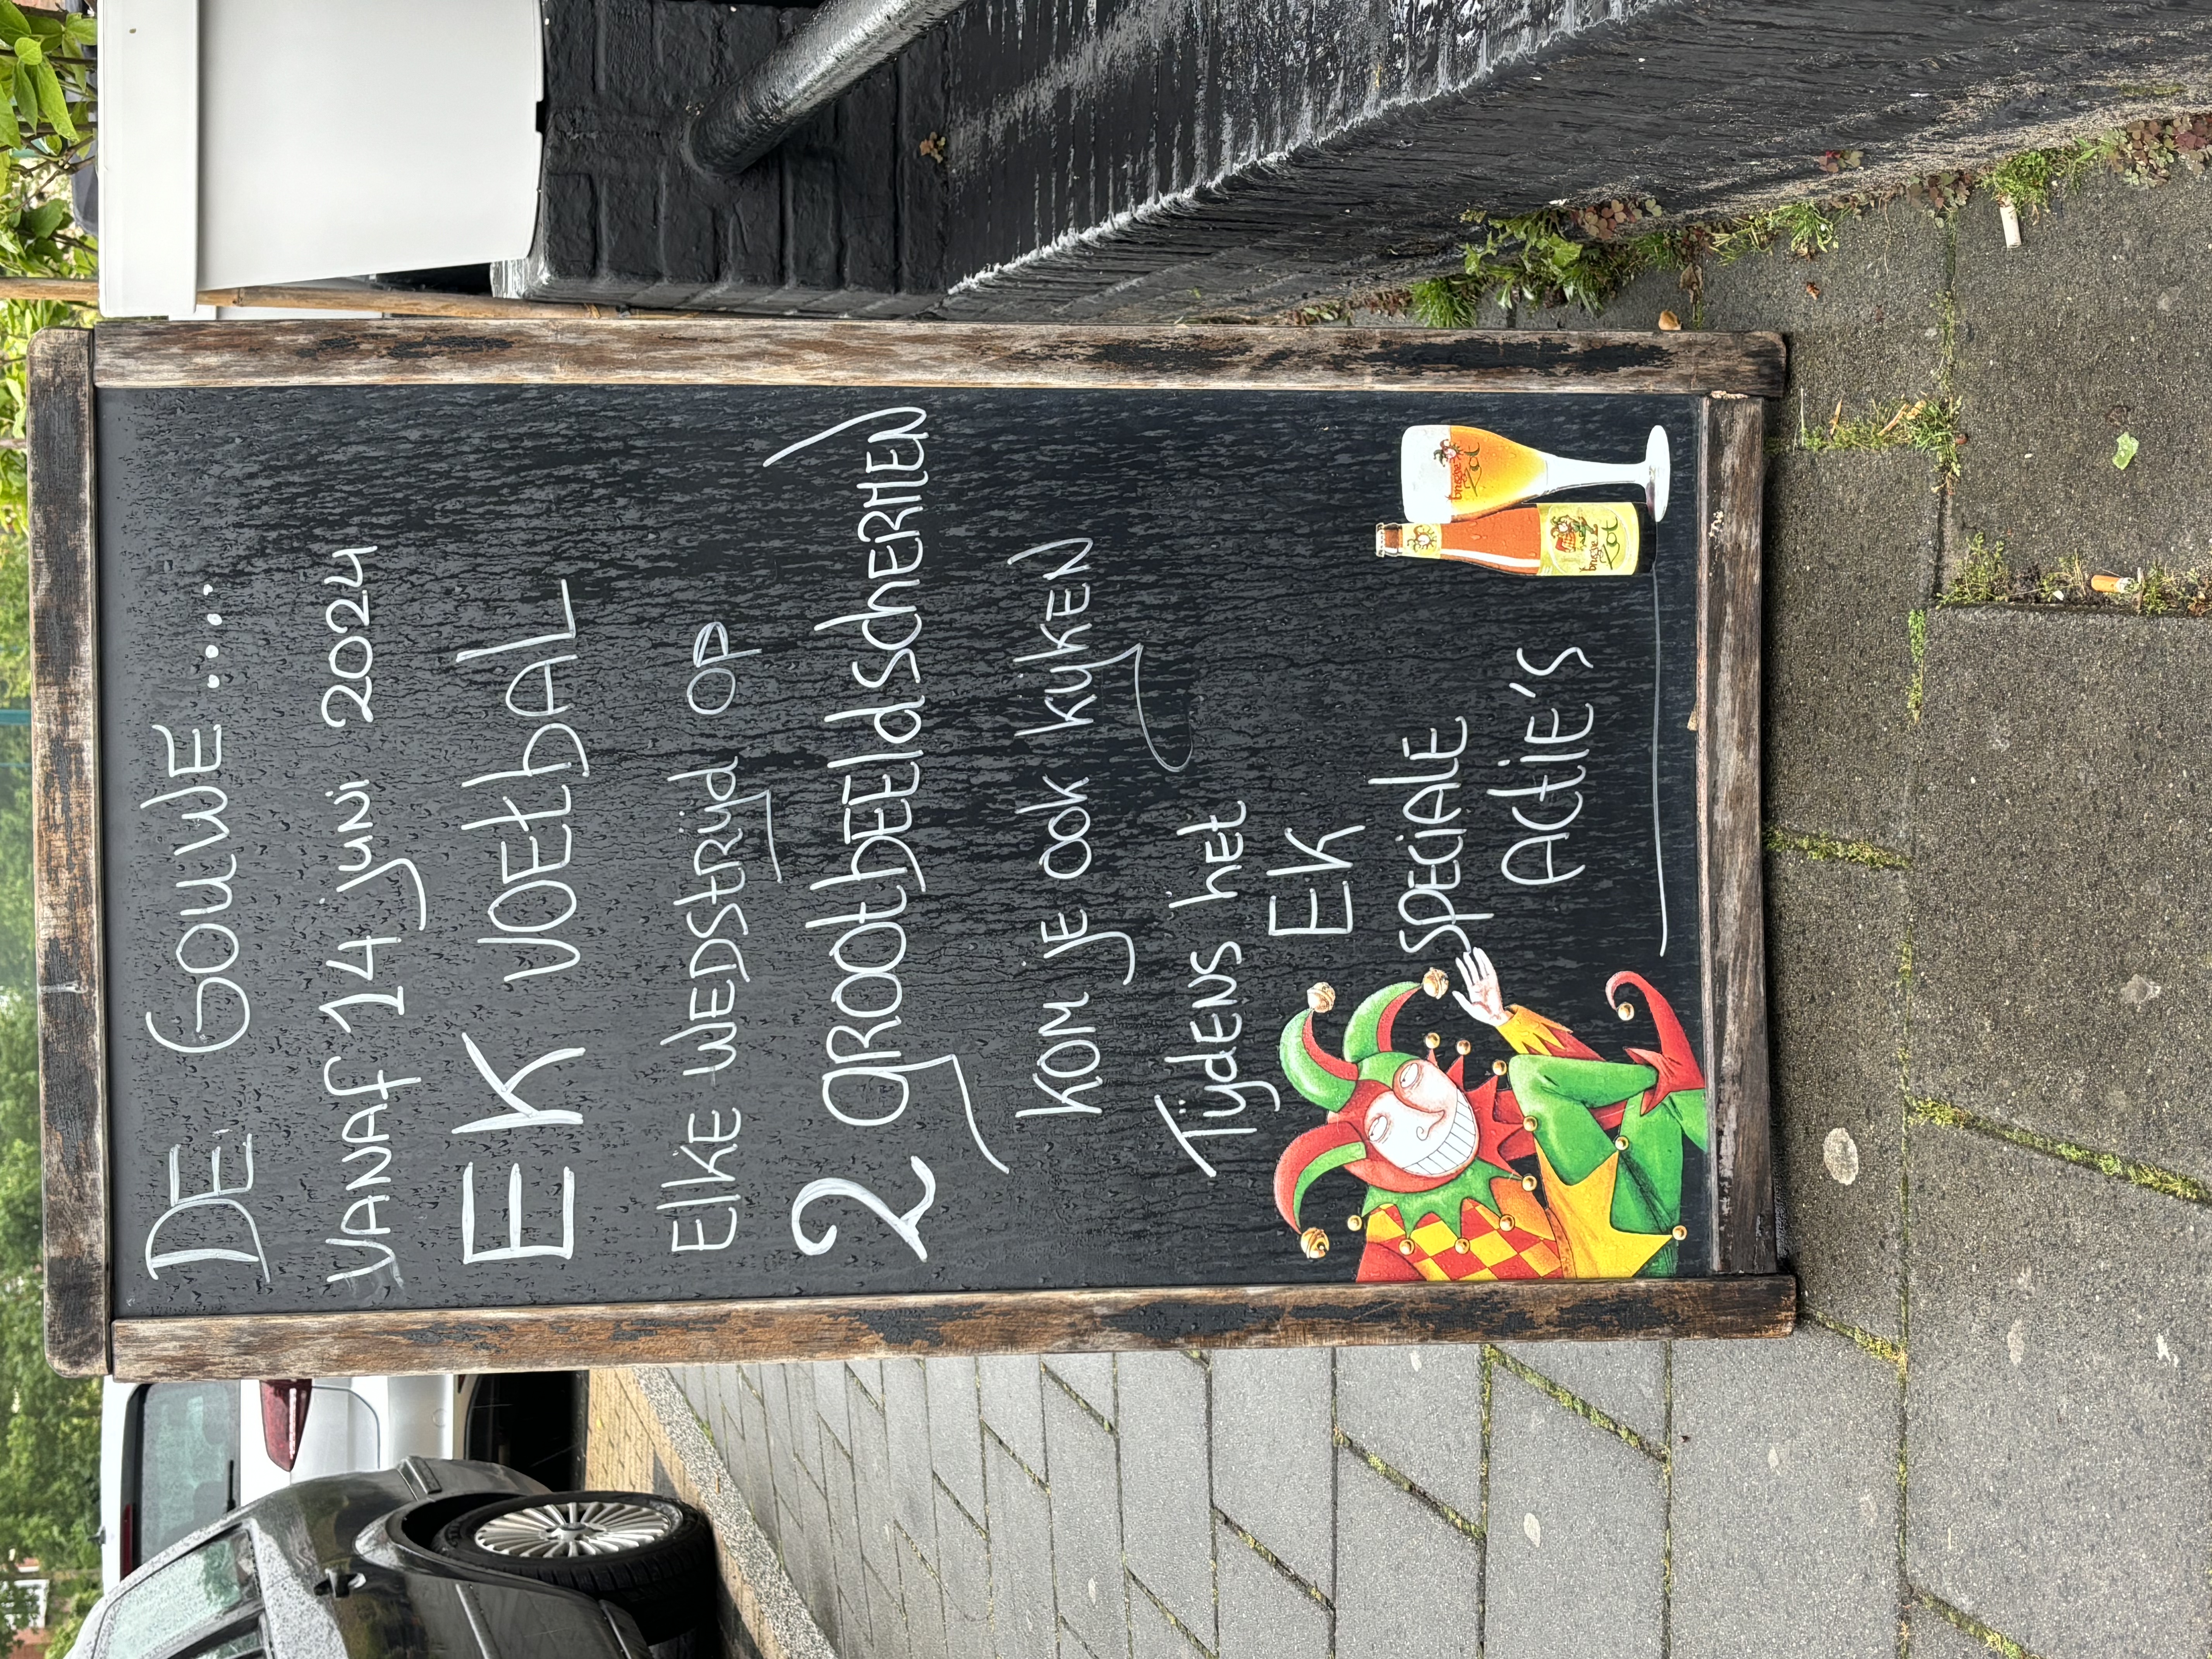 DE GOUWE ....
VANAF 14 juni 2024
EK VOETBAL
ELKE WEDSTRIJD OP
2 GROOTBEELDSCHERMEN
KOM JE OOK KIJKEN
TIJDENS het
EK
SPECIALE
ACTIE'S
brugse
Zot
brugse
Zot